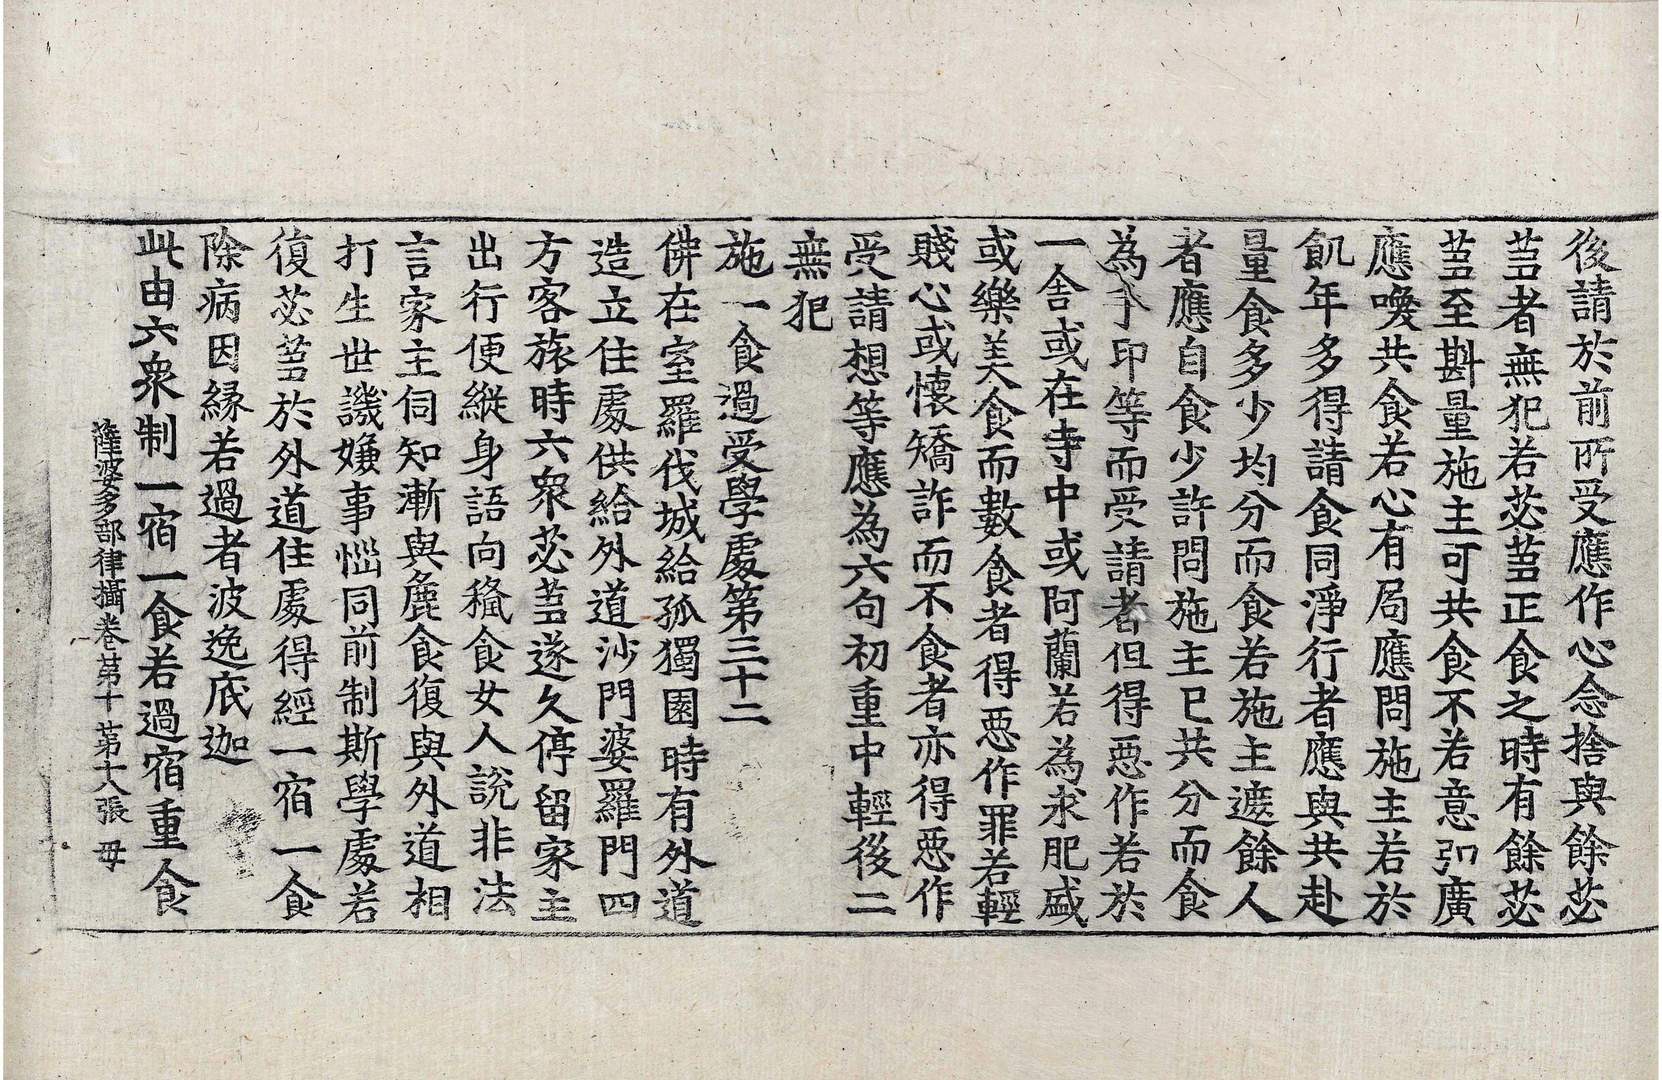 後請於前所受應作心念捨與餘苾
芻者無犯若苾芻正食之時有餘苾
芻至斟量施主可共食不若意弘廣
應喚共食若心有局應問施主若於
飢年多得請食同淨行者應與共赴
量食多少均分而食若施主遮餘人
者應自食少許問施主已共分而食
為手印等而受請者但得惡作若於
一舍或在寺中或阿蘭若為求肥盛
或樂美食而數食者得惡作罪若輕
賤心或懷矯詐而不食者亦得惡作
受請想等應為六句初重中輕後二
無犯
施一食過受學處第三十二
佛在室羅伐城給孤獨園時有外道
造立住處供給外道沙門婆羅門四
方客旅時六眾苾芻遂久停留家主
出行便縱身語向穢食女人說非法
言家主伺知漸與麁食復與外道相
打生世譏嫌事惱同前制斯學處若
復苾芻於外道住處得經一宿一食
除病因緣若過者波逸底迦
此由六眾制一宿一食若過宿重食
薩婆多部律攝卷第十 第十八張 毋